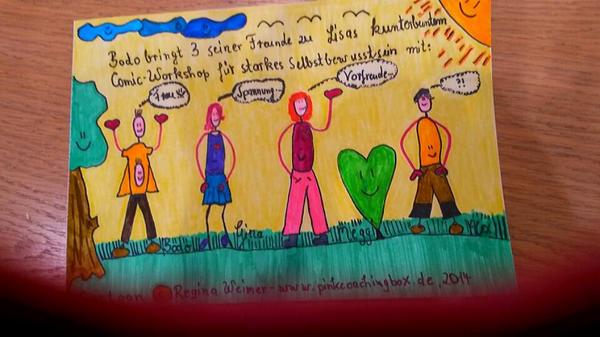 Bodo bringt 3 seiner Freunde zu Lisas kunterbuntem
Comic-Workshop für starkes Selbstbewusstsein mit:
Spannung
Vorfreude...
?!
Bodo
Megg
© Regina Weimer - www.pinkcoachingbox.de, 2014